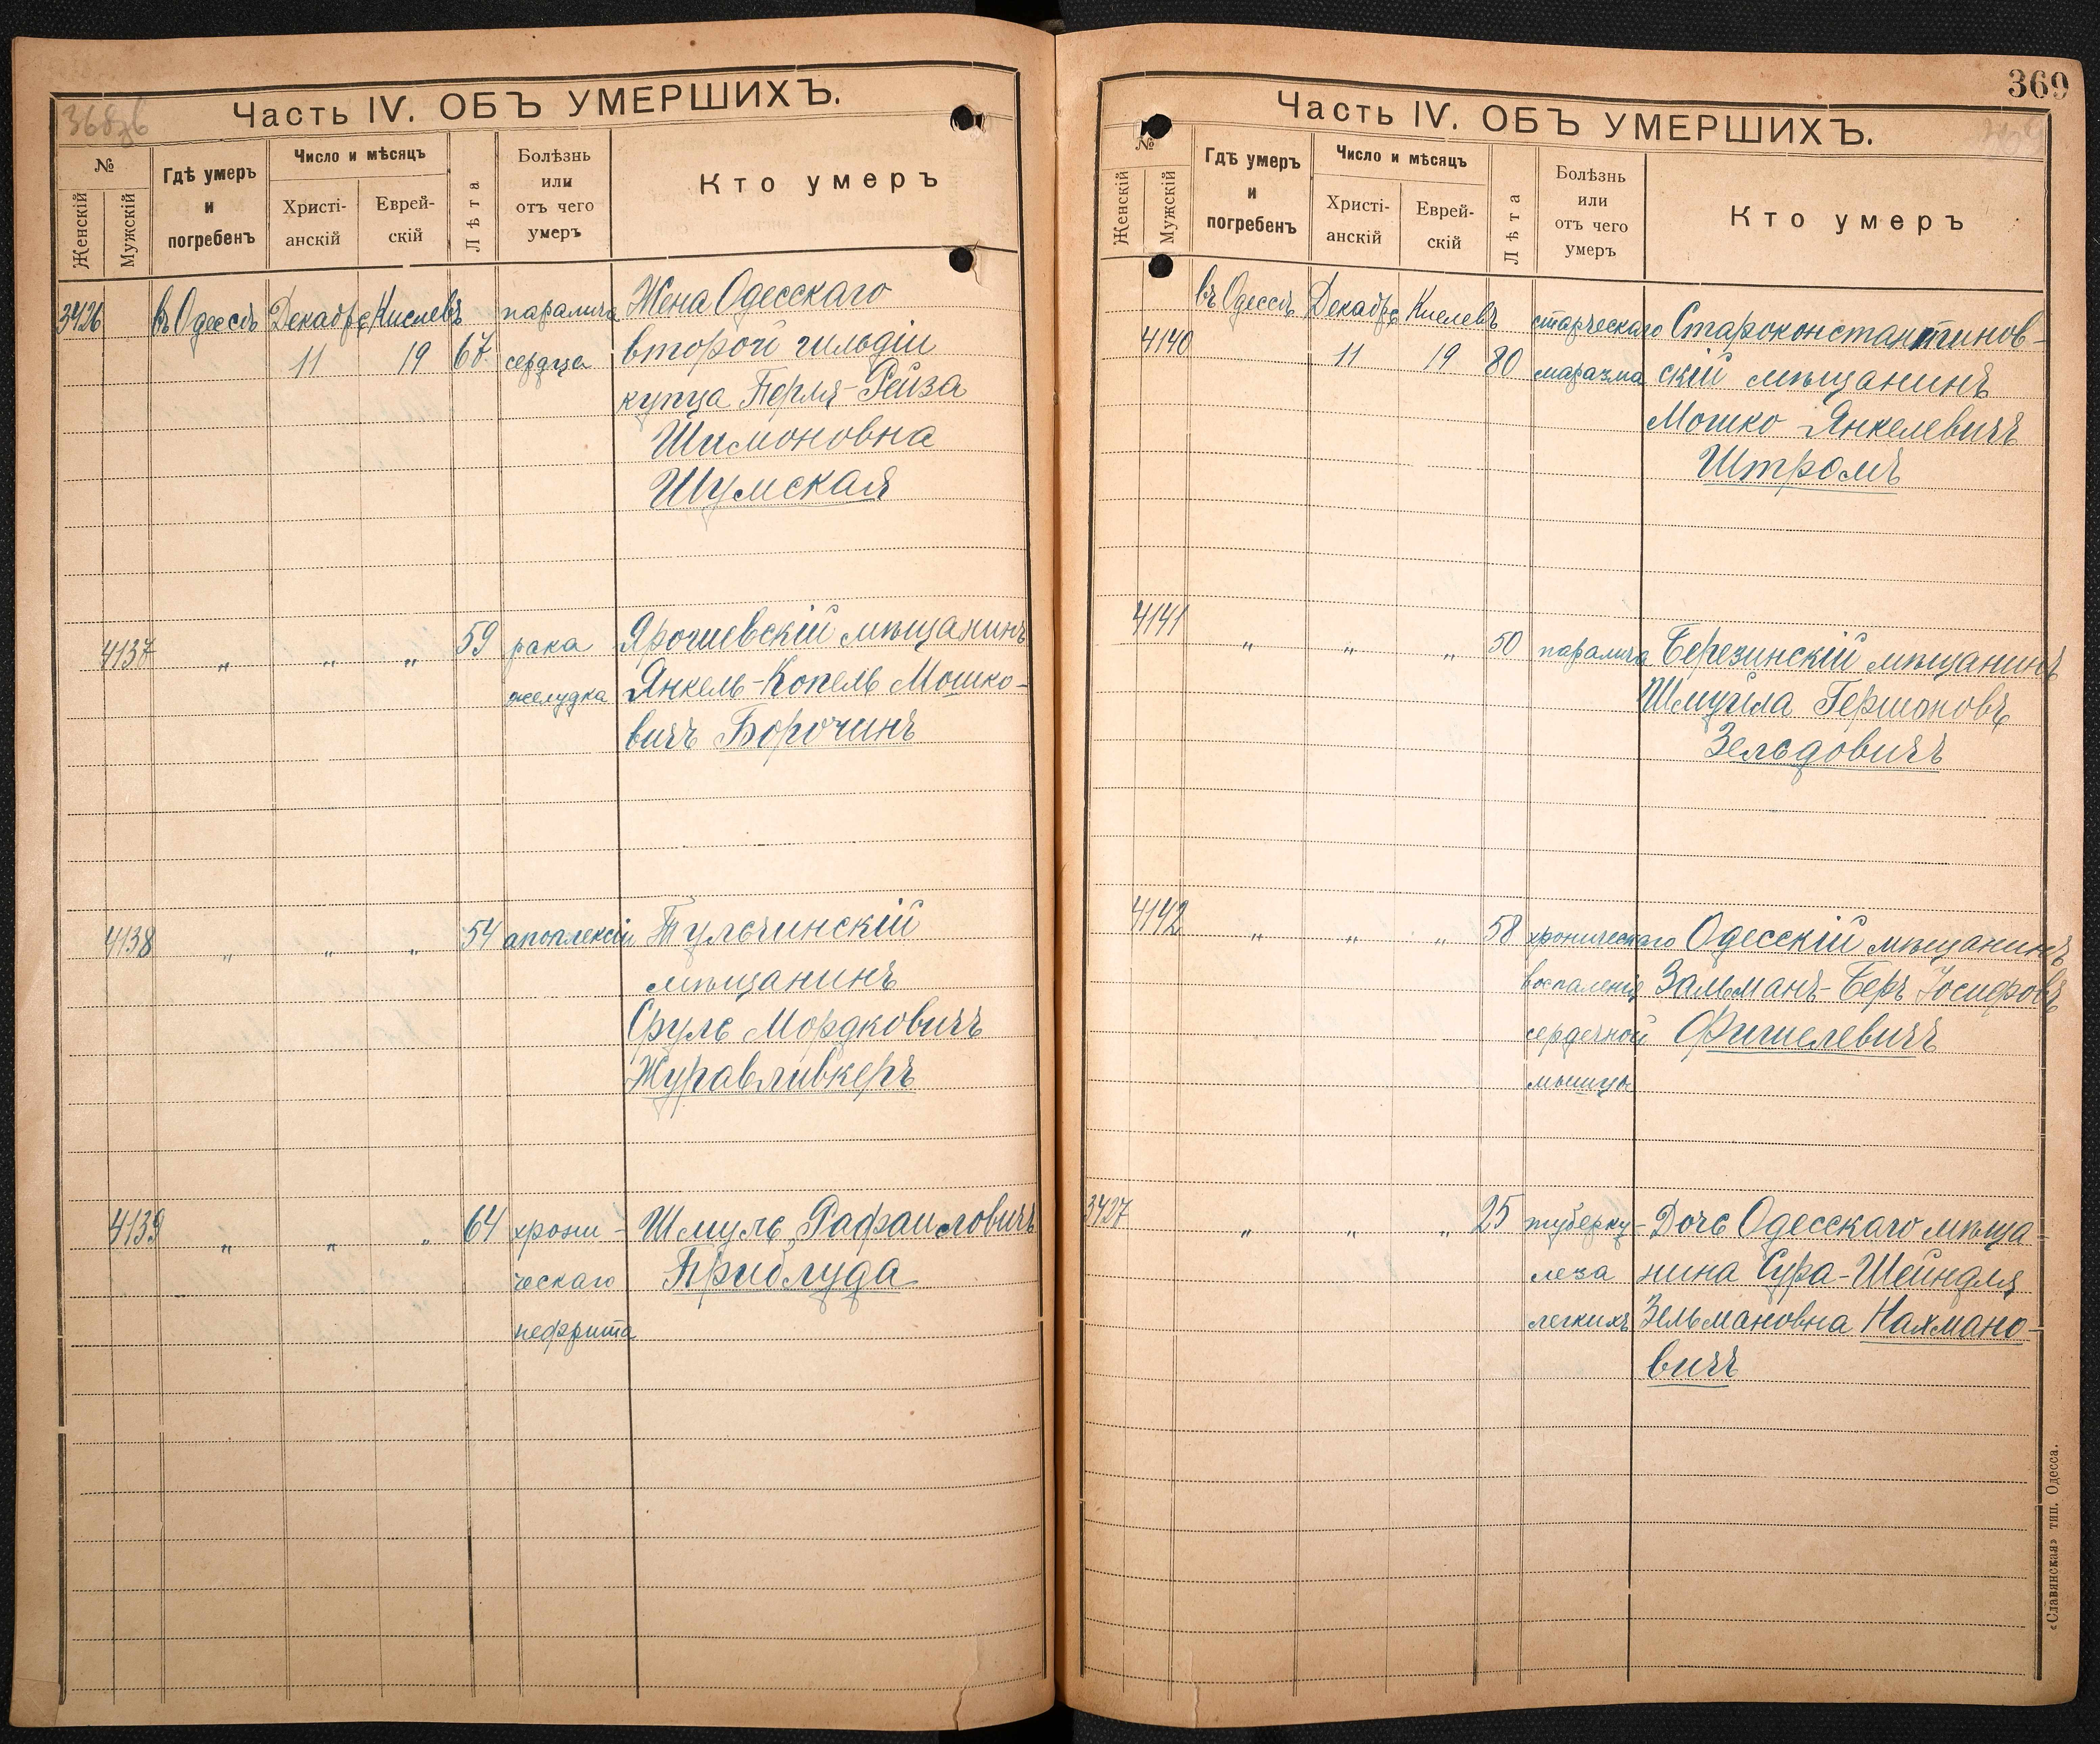 Часть IV. ОБЪ УМЕРШИХЪ.
№
Женскій
Мужскій
Гдѣ умеръ
и
погребенъ
Число и мѣсяцъ
Христі-
анскій
Еврей-
скій
Лѣта
Болѣзнь
или
отъ чего
умеръ
Кто умеръ
3426 въ Одессѣ Декабрь Кислевъ паралича Жена Одесскаго
11 19 67 сердца второй гильдіи
купца Перля-Рейза
Шимоновна
Шумская
4137 " " " 59 рака Ярошевскій мѣщанинъ
желудка Янкель-Копель Мошко-
вичъ Борочинъ
4138 " " " 54 апоплексіи Тульчинскій
мѣщанинъ
Сруль Мордковичъ
Журавливкеръ
4139 " " " 64 хрони- Шмуль Рафаиловичъ
ческаго Приблуда
нефрита
369
Часть IV. ОБЪ УМЕРШИХЪ.
№
Женскій
Мужскій
Гдѣ умеръ
и
погребенъ
Число и мѣсяцъ
Христі-
анскій
Еврей-
скій
Лѣта
Болѣзнь
или
отъ чего
умеръ
Кто умеръ
въ Одессѣ Декабрь Кислевъ старческаго Староконстантинов-
4140 11 19 80 маразма скій мѣщанинъ
Мошко Янкелевичъ
Штромъ
4141 " " " 50 паралича Березинскій мѣщанинъ
Шмуила Гершоновъ
Зельдовичъ
4142 " " " 58 хроническаго Одесскій мѣщанинъ
воспаленія Зальманъ-Беръ Іосифовъ
сердечной Фишелевичъ
мышцы
3427 " " " 25 туберку- Дочь Одесскаго мѣща-
леза нина Сура-Шейндля
легкихъ Зельмановна Нахмано-
вичъ
«Славянская» тип. Одесса.